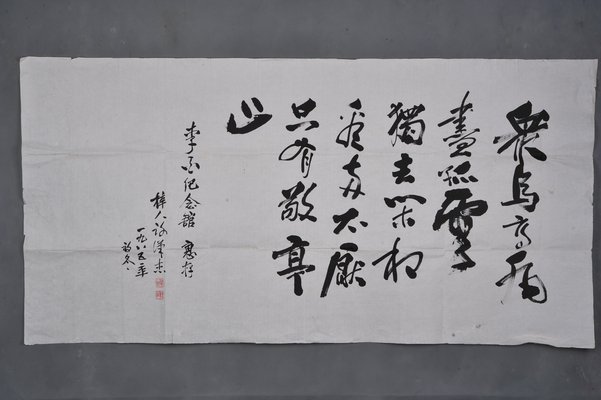 眾鳥高飛
盡孤雲
獨去閑相
看兩不厭
只有敬亭
山
李白纪念館 惠存
梓人
一九八五年
初冬